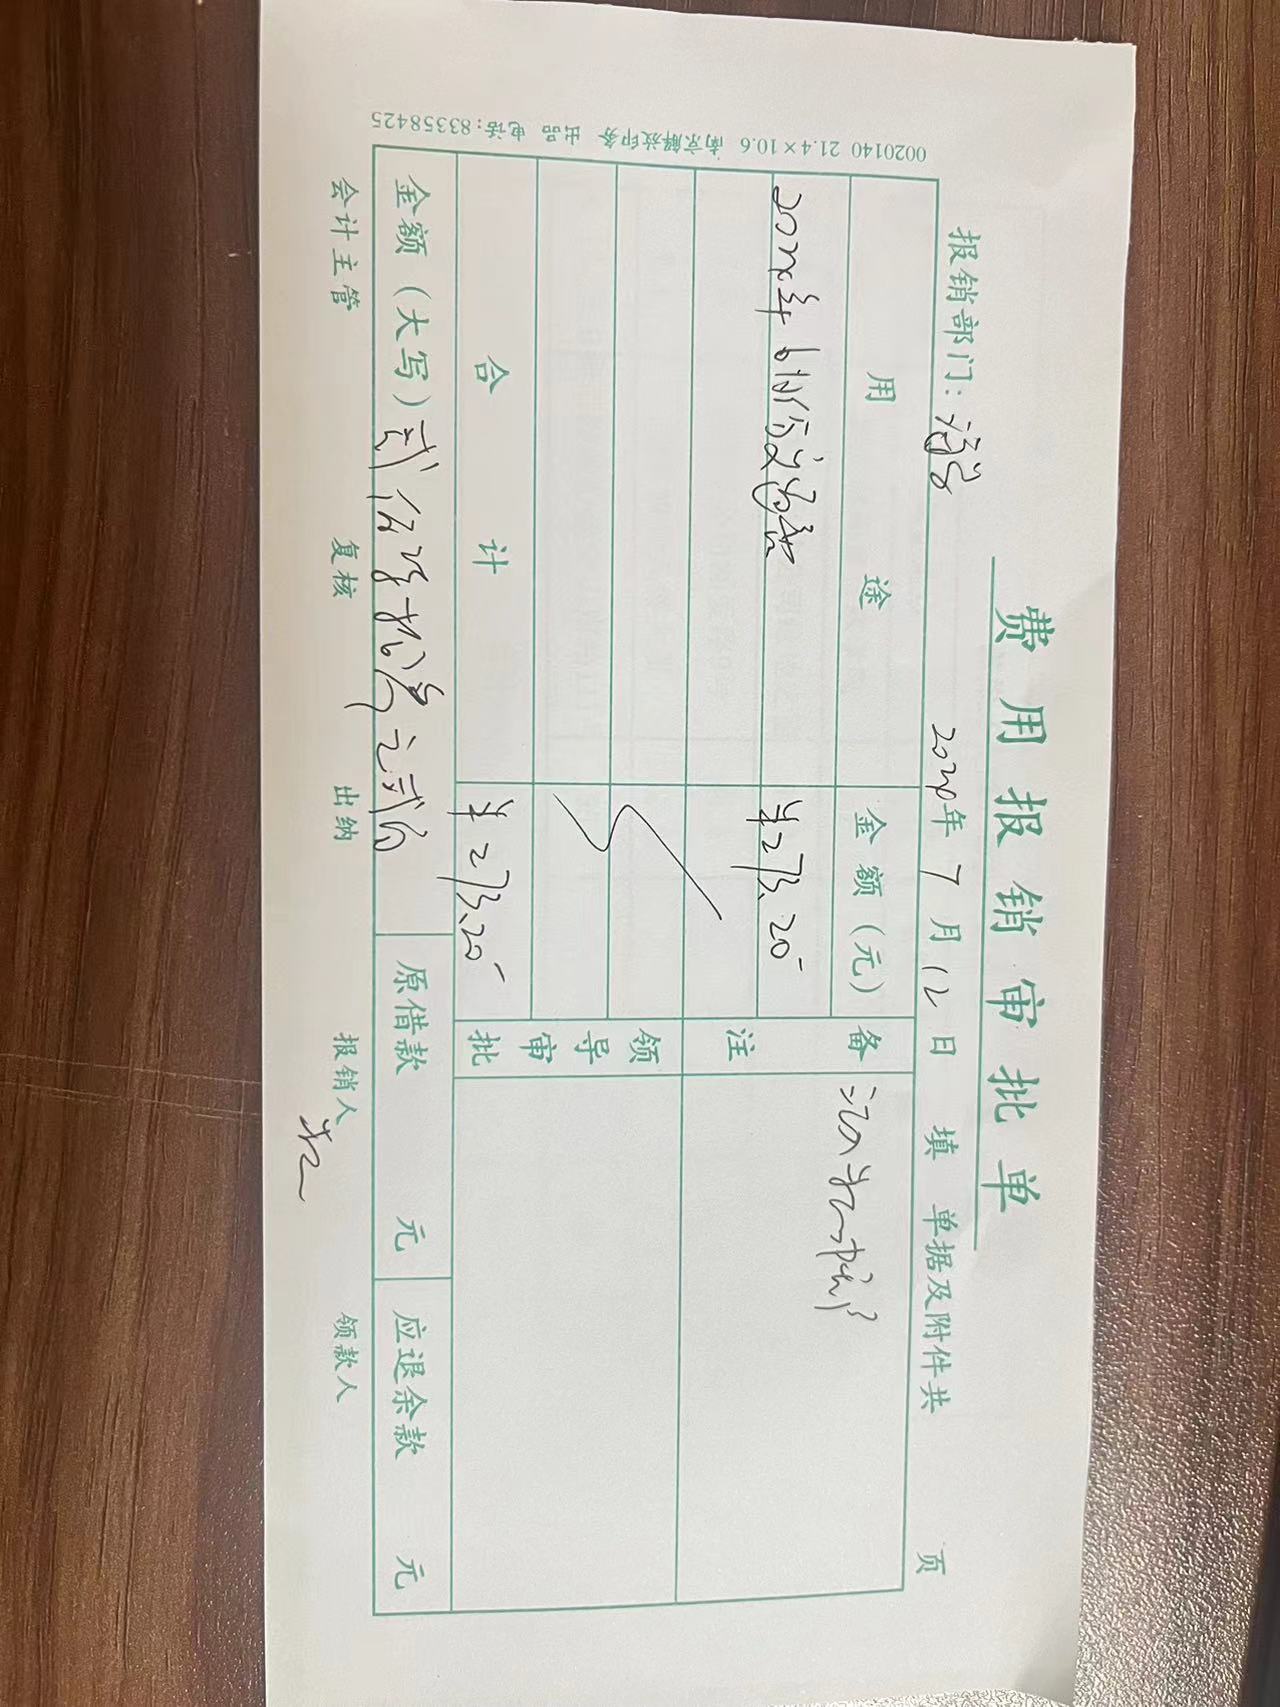 费用报销审批单
报销部门: 2020年7月12日 填 单据及附件共 页
用途 金额(元) 备注
2020年6月份交通费 ¥273.20
领导审批
合计 ¥273.20
金额(大写) 原借款 元 应退余款 元
会计主管 复核 出纳 报销人 领款人
0020140 21.4×10.6 南京解放印务 出品 电话:83358425